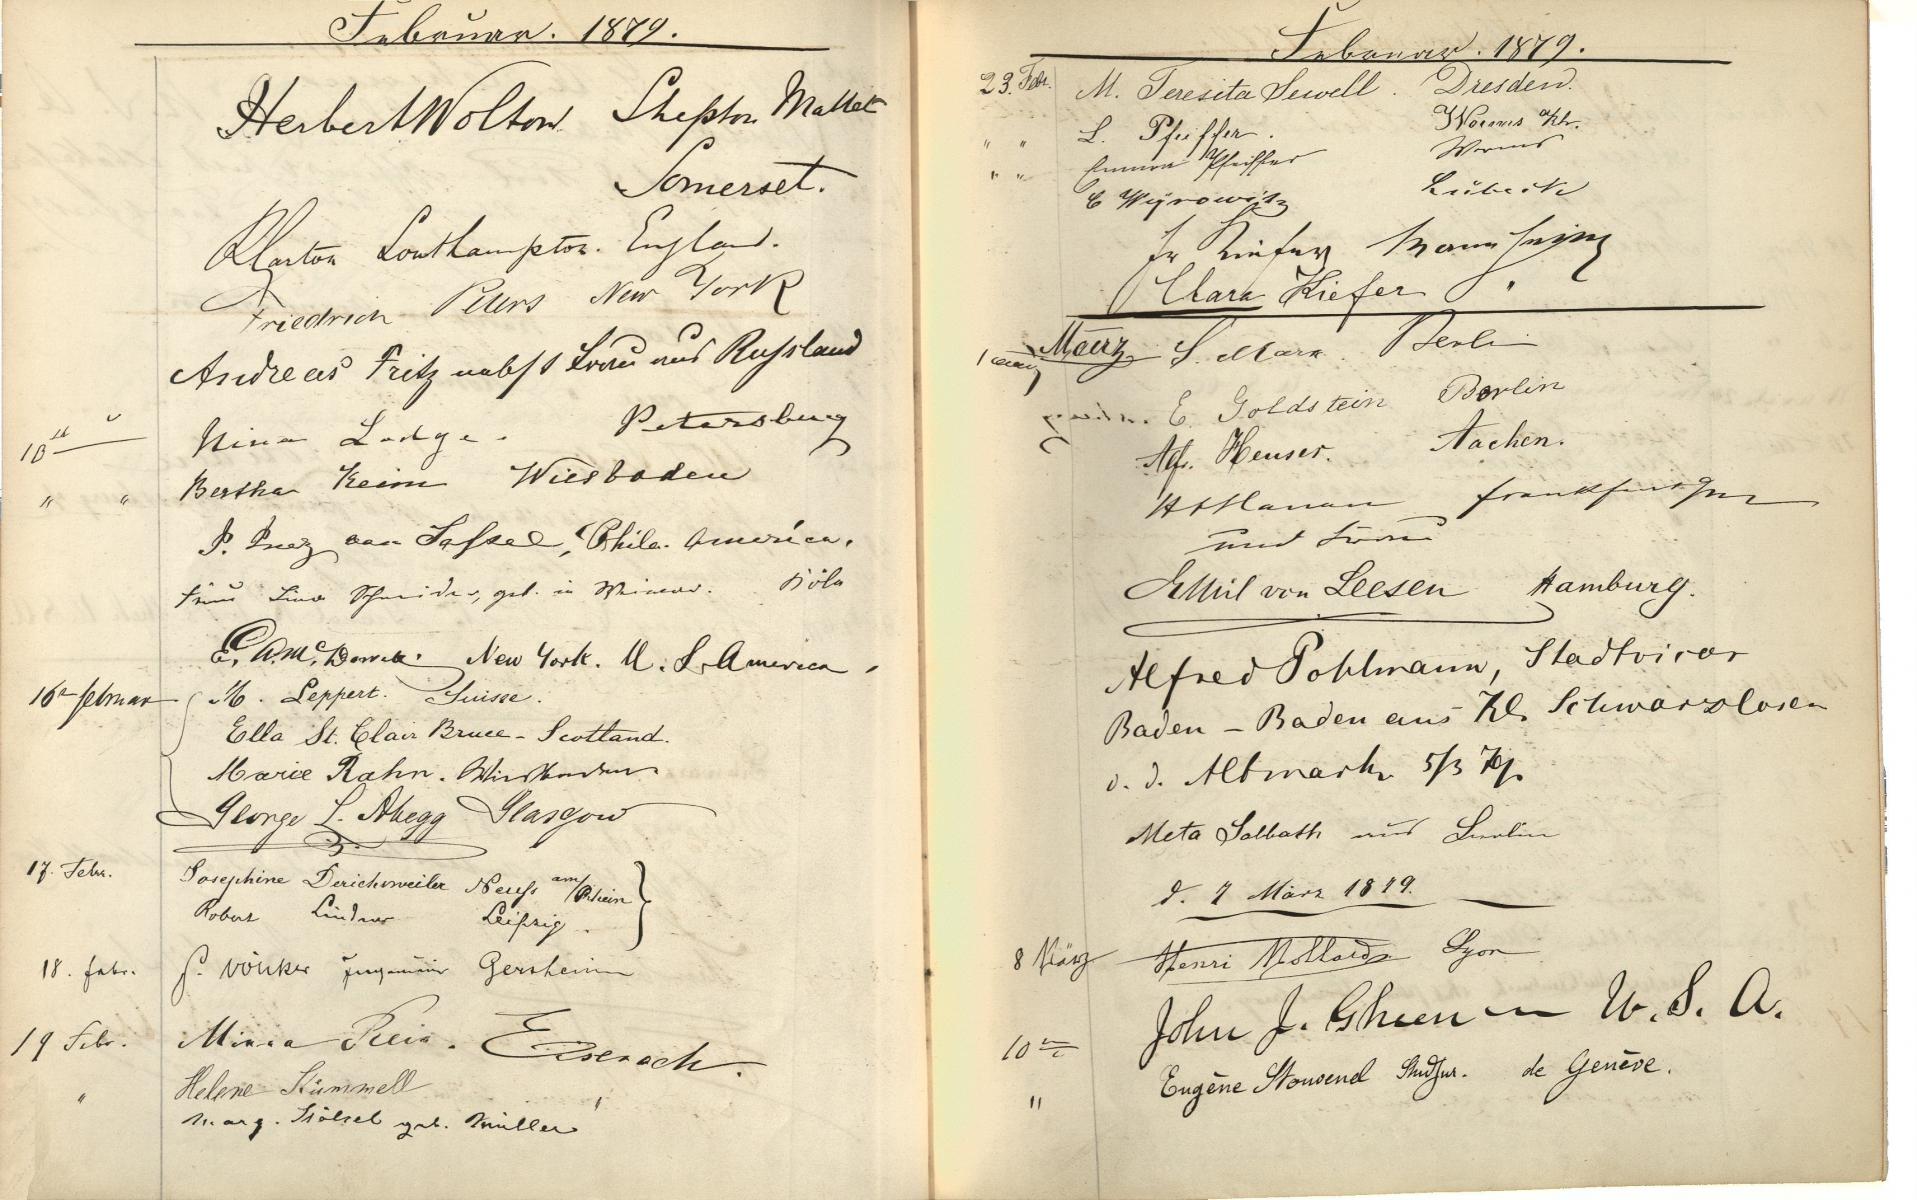 Februar. 1879.
Herbert Wolton Shepton Mallet
Somerset.
Southampton. England.
Friedrich Peters New York
Andreas Fritz nebst Frau aus Russland
Nina Lodge. Petersburg
10
" " Bertha Keim Wiesbaden
Phila. America.
Frau Lina Schneider, geb. in Weimar. Köln
New York. U. S. America,
16n februar M. Leppert. Suisse.
Ella St. Clair Bruce - Scotland.
Marie Rahn. Wiesbaden.
George L. Abegg Glasgow
17. Febr. Josephine Derichsweiler Neuss am/Rhein
Robert Lindner Leipzig.
18. febr. Völker Ingenieur Gersheim
19 Febr. Minna Eisenach.
" Helene Kümmell "
Marg. geb. Müller
Februar. 1879.
23. Febr. M. Teresita Sewell. Dresden.
" " L. Pfeiffer. Worms
" " Emma Pfeiffer Worms
Lübeck
Kiefer Mannheim
Clara Kiefer "
Maerz
1 S. Marx. Berlin
E. Goldstein Berlin
Heuser. Aachen.
und Frau
Emil von Leesen Hamburg.
Alfred Pohlmann, Stadtvicar
Baden - Baden aus Kl. Schwarzlosen
i. d. Altmark 5/3 79.
Meta Salbath aus Berlin
d. 7 März 1879.
8 März Henri Mollard Lyon
John J. Gheen — U. S. A.
10
" Eugène Studjur. de Genève.